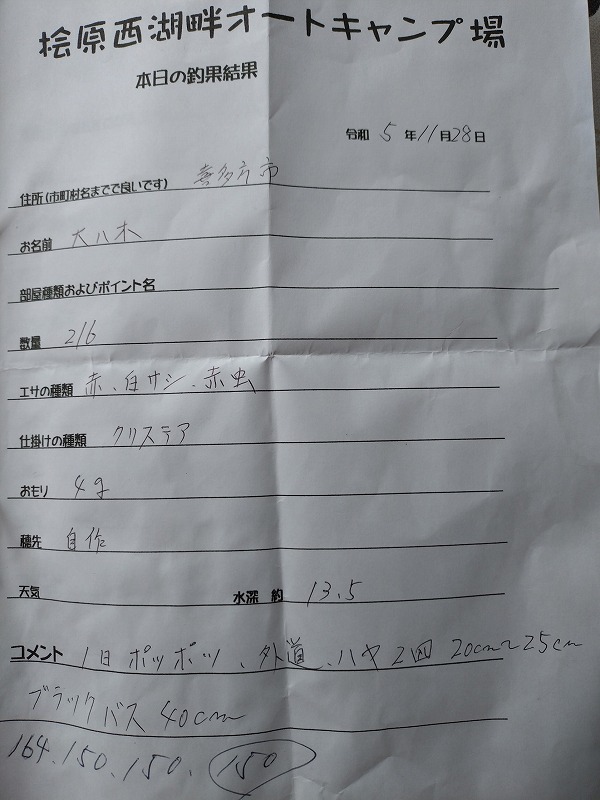 桧原西湖畔オートキャンプ場
本日の釣果結果
令和 5 年 11 月 28 日
住所(市町村名までで良いです) 喜多方市
お名前 大八木
部屋種類およびポイント名
数量 216
エサの種類 赤、白サシ、赤虫
仕掛けの種類 クリステア
おもり 4g
穂先 自作
天気 水深 約 13.5
コメント 1日ポツポツ、外道、ハヤ2回 20cm~25cm
ブラックバス 40cm
164.150.150.150